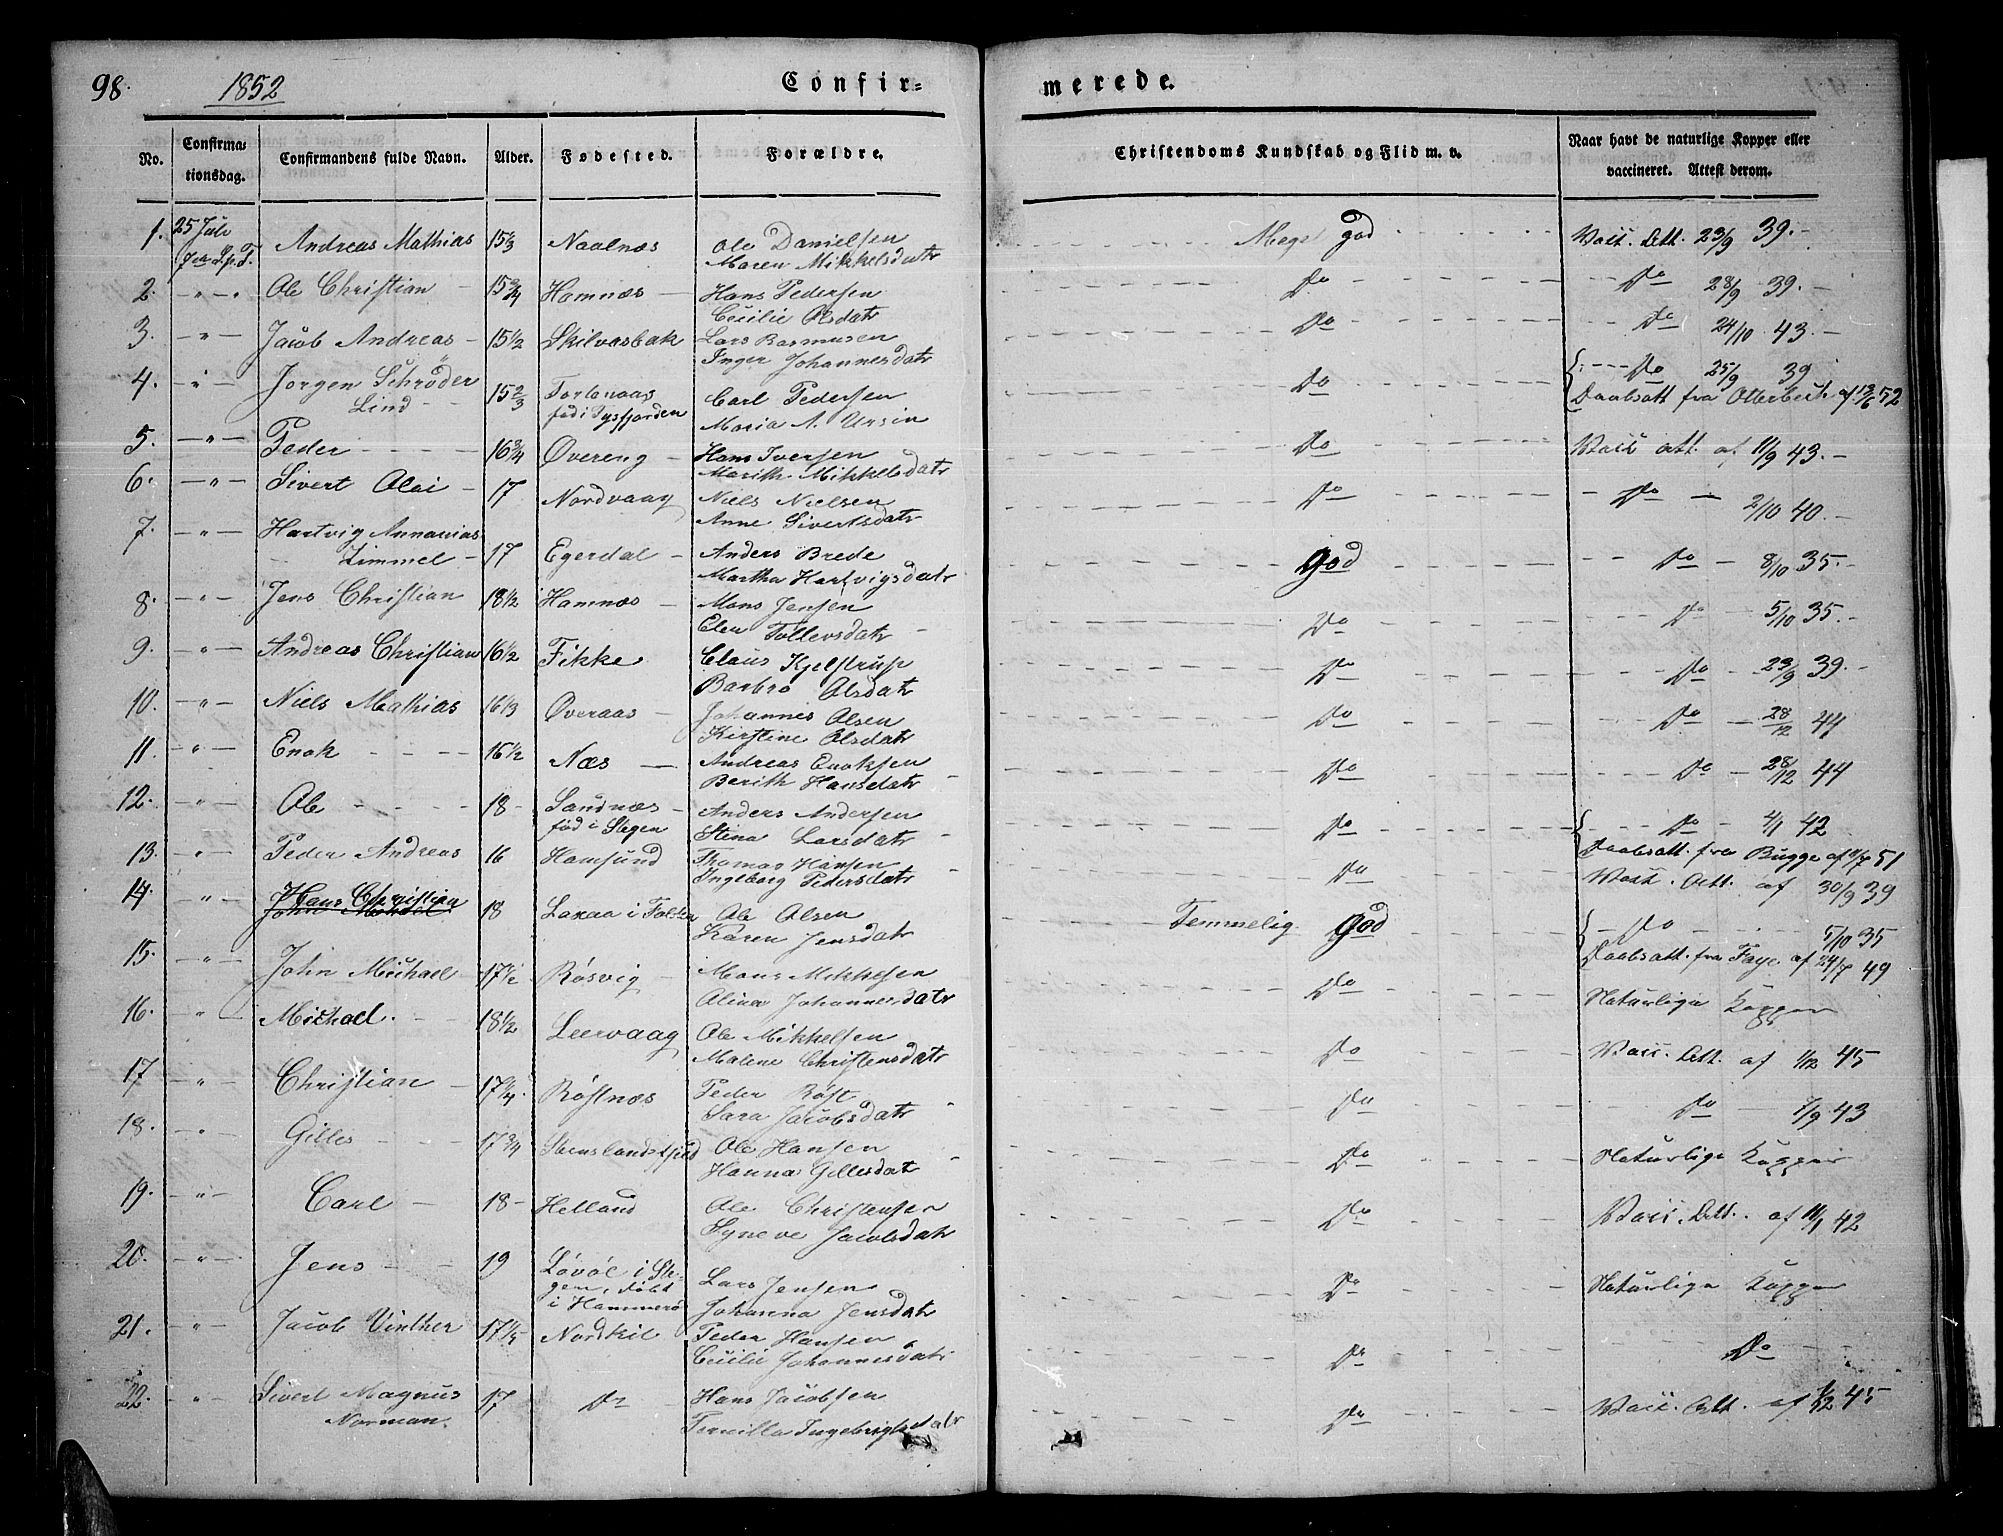 98. 1852 Confir=
merede.
No. Confirma= tionsdag. Confirmandens fulde Navn. Alder. Fødested. Forældre. Christendoms Kundskab og Flid m. v. Naar havt de naturlige Kopper eller vaccineret. Attest derom.
1. 25 Juli Andreas Mathias 15⅓ Naalnæs Ole Danielsen Meget god Vacc. Att. 23/9 39.
7de S.p.T. Maren Mikkelsdatr
2. Ole Christian 15¾ Hamnæs Hans Pedersen Do Do 28/9 39.
Cecilie Olsdatr
3. Jacob Andreas 15½ Skilvasbak Lars Rasmusen Do Do 24/10 43.
Inger Johannesdatr
4. Jørgen Schrøder 15⅔ Carl Pedersen Do Do 25/9 39
Lind fød i Tysfjorden Maria A. Ursin Daabsatt fra Otterbeck af 13/6 52
5. Peder 16¾ Øvereng Hans Iversen Do Vacc att. af 11/9 43.
Marith Mikkelsdatr
6. Sivert Olai 17 Nordvaag Niels Nielsen Do Do 2/10 40.
Anne Sivertsdatr
7. Hartvig Annanias
Zimmel 17 Egerdal Anders Brede god Do 8/10 35.
Martha Hartvigsdatr
8. Jens Christian 18½ Hamnæs Mons Jensen Do Do 5/10 35.
Elen Tollevsdatr
9. Andreas Christian 16½ Fikke Claus Kjelstrup Do Do 23/9 39.
Barbro Olsdatr
10. Niels Mathias 16⅓ Øveraas Johannes Olsen Do Do 28/12 44
Kirstine Olsdatr
11. Enok 16½ Næs Andreas Enoksen Do Do 28/12 44
Berith Hansdatr
12. Ole 18 Sandnæs Anders Andersen Do Do 4/1 42
fød i Stegen Stina Larsdatr Daabsatt. fra Bugge af 11/7 51
13. Peder Andreas 16 Hamsund Thomas Hansen Do Vacc. Att. af 30/9 39
Ingeborg Pedersdatr
14. Hans Christian 18 Laxaa i Folden Ole Olsen Temmelig god Do 5/10 35
Karen Jensdatr Daabsatt. fra Faye af 24/7 49
15. John Michael 17½ Røsvig Mons Mikkelsen Do Naturlige Kopper
Alina Johannesdatr
16. Michael 18½ Leervaag Ole Mikkelsen Do Vacc. Att. af 1/12 45
Malene Christensdatr
17 Christian 17¼ Røstnæs Peder Røst Do Do 7/9 43
Sara Jacobsdatr
18. Gilles 17¾ Steenslandsfjord Ole Hansen Do Naturlige Kopper
Hanna Gillesdat
19. Carl 18 Helland Ole Christensen Do Vacc. Att. af 11/1 42
Syneve Jacobsdatr
20. Jens 19 Løvøe i Ste= Lars Jensen Do Naturlige Kopper
gen, døbt
i Hammerø Johanna Jensdatr
21. Jacob Vinther 17⅕ Nordkil Peder Hansen Do Do
Cecilie Johannesdatr
22. Sivert Magnus 17 Do Hans Jacobsen Do Vacc. Att. af ½ 45
Norman. Pernilla Ingebrigtsdatr